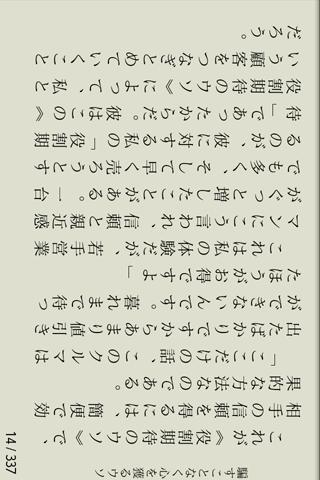 騙すことなく心を獲るウソ
これが《役割期待のウソ》で、
相手の信頼を得るには、簡便で効
果的な方法なのである。
「ここだけの話、このクルマは
出たばかりですからあまり値引き
ができないんです。暮れまで待っ
たほうがお得ですよ」
これは私の体験だが、若手営業
マンにこう言われ、信頼と親近感
がぐっと増したことがある。一台
でも多く、そして早く売ろうとす
るのが、彼に対する私の「役割期
待」であったからだ。彼はこの《
役割期待のウソ》によって、私と
いう顧客をつなぎとめていくこと
だろう。
14 / 337